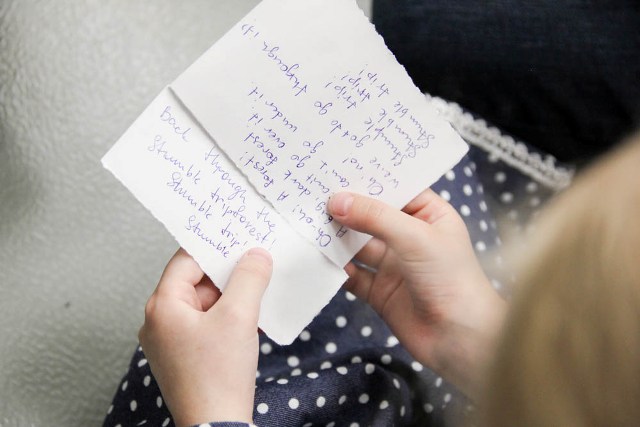 Oh-oh! A forest!
A dark forest
can't go over it
can't go under it
Oh no!
We've got to go through it!
Stumble trip!
Stumble trip!
Stumble trip!
Back through the
forest!
Stumble trip!
Stumble trip!
Stumble